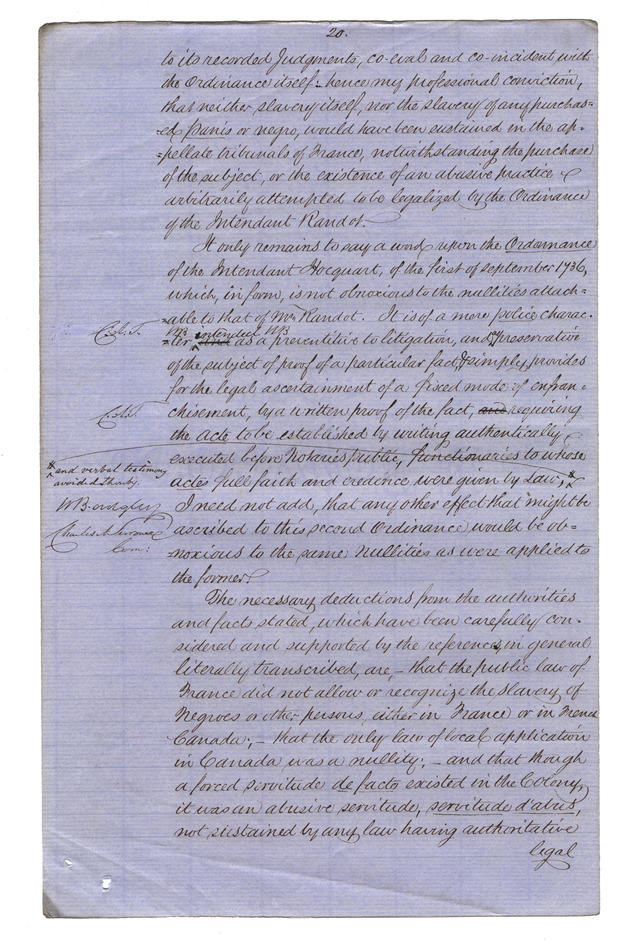 20.
to its recorded Judgments, co-eval and co-incident with
the Ordinance itself - hence my professional conviction,
that neither slavery itself, nor the slavery of any purchas=
=ed Panis or negro, would have been sustained in the ap=
=pellate tribunals of France, notwithstanding the purchase
of the subject, or the existence of an abusive practice
arbitrarily attempted to be legalized by the Ordinance
of the Intendant Raudot.
It only remains to say a word upon the Ordonnance
of the Intendant Hocquart, of the first of september 1736,
which, in form, is not obnoxious to the nullities attach=
=able to that of Mr Raudot. It is of a more police charac=
WB intended WB
=ter as a preventitive to litigation, and preservative
of the subject of proof of a particular fact, & simply provides
for the legal ascertainment of a fixed mode of enfran=
chisement, by a written proof of the fact, and requiring
the acte to be established by writing authentically
executed before Notaries public, functionaries to whose
* and verbal testimony
avoided thereby.
actes full faith and credence were given by Law, *
I need not add, that any other effect that might be
ascribed to this second Ordinance would be ob=
=noxious to the same nullities as were applied to
Com:
the former.
The necessary deductions from the authorities
and facts stated, which have been carefully con=
sidered and supported by the references, in general
literally transcribed, are, - that the public law of
France did not allow or recognize the slavery of
Negroes or other persons, either in France or in French
Canada; - that the only law of local application
in Canada was a nullity; - and that though
a forced servitude de facto existed in the Colony,
it was an abusive servitude, servitude d'abus,
not sustained by any law having authoritative
legal